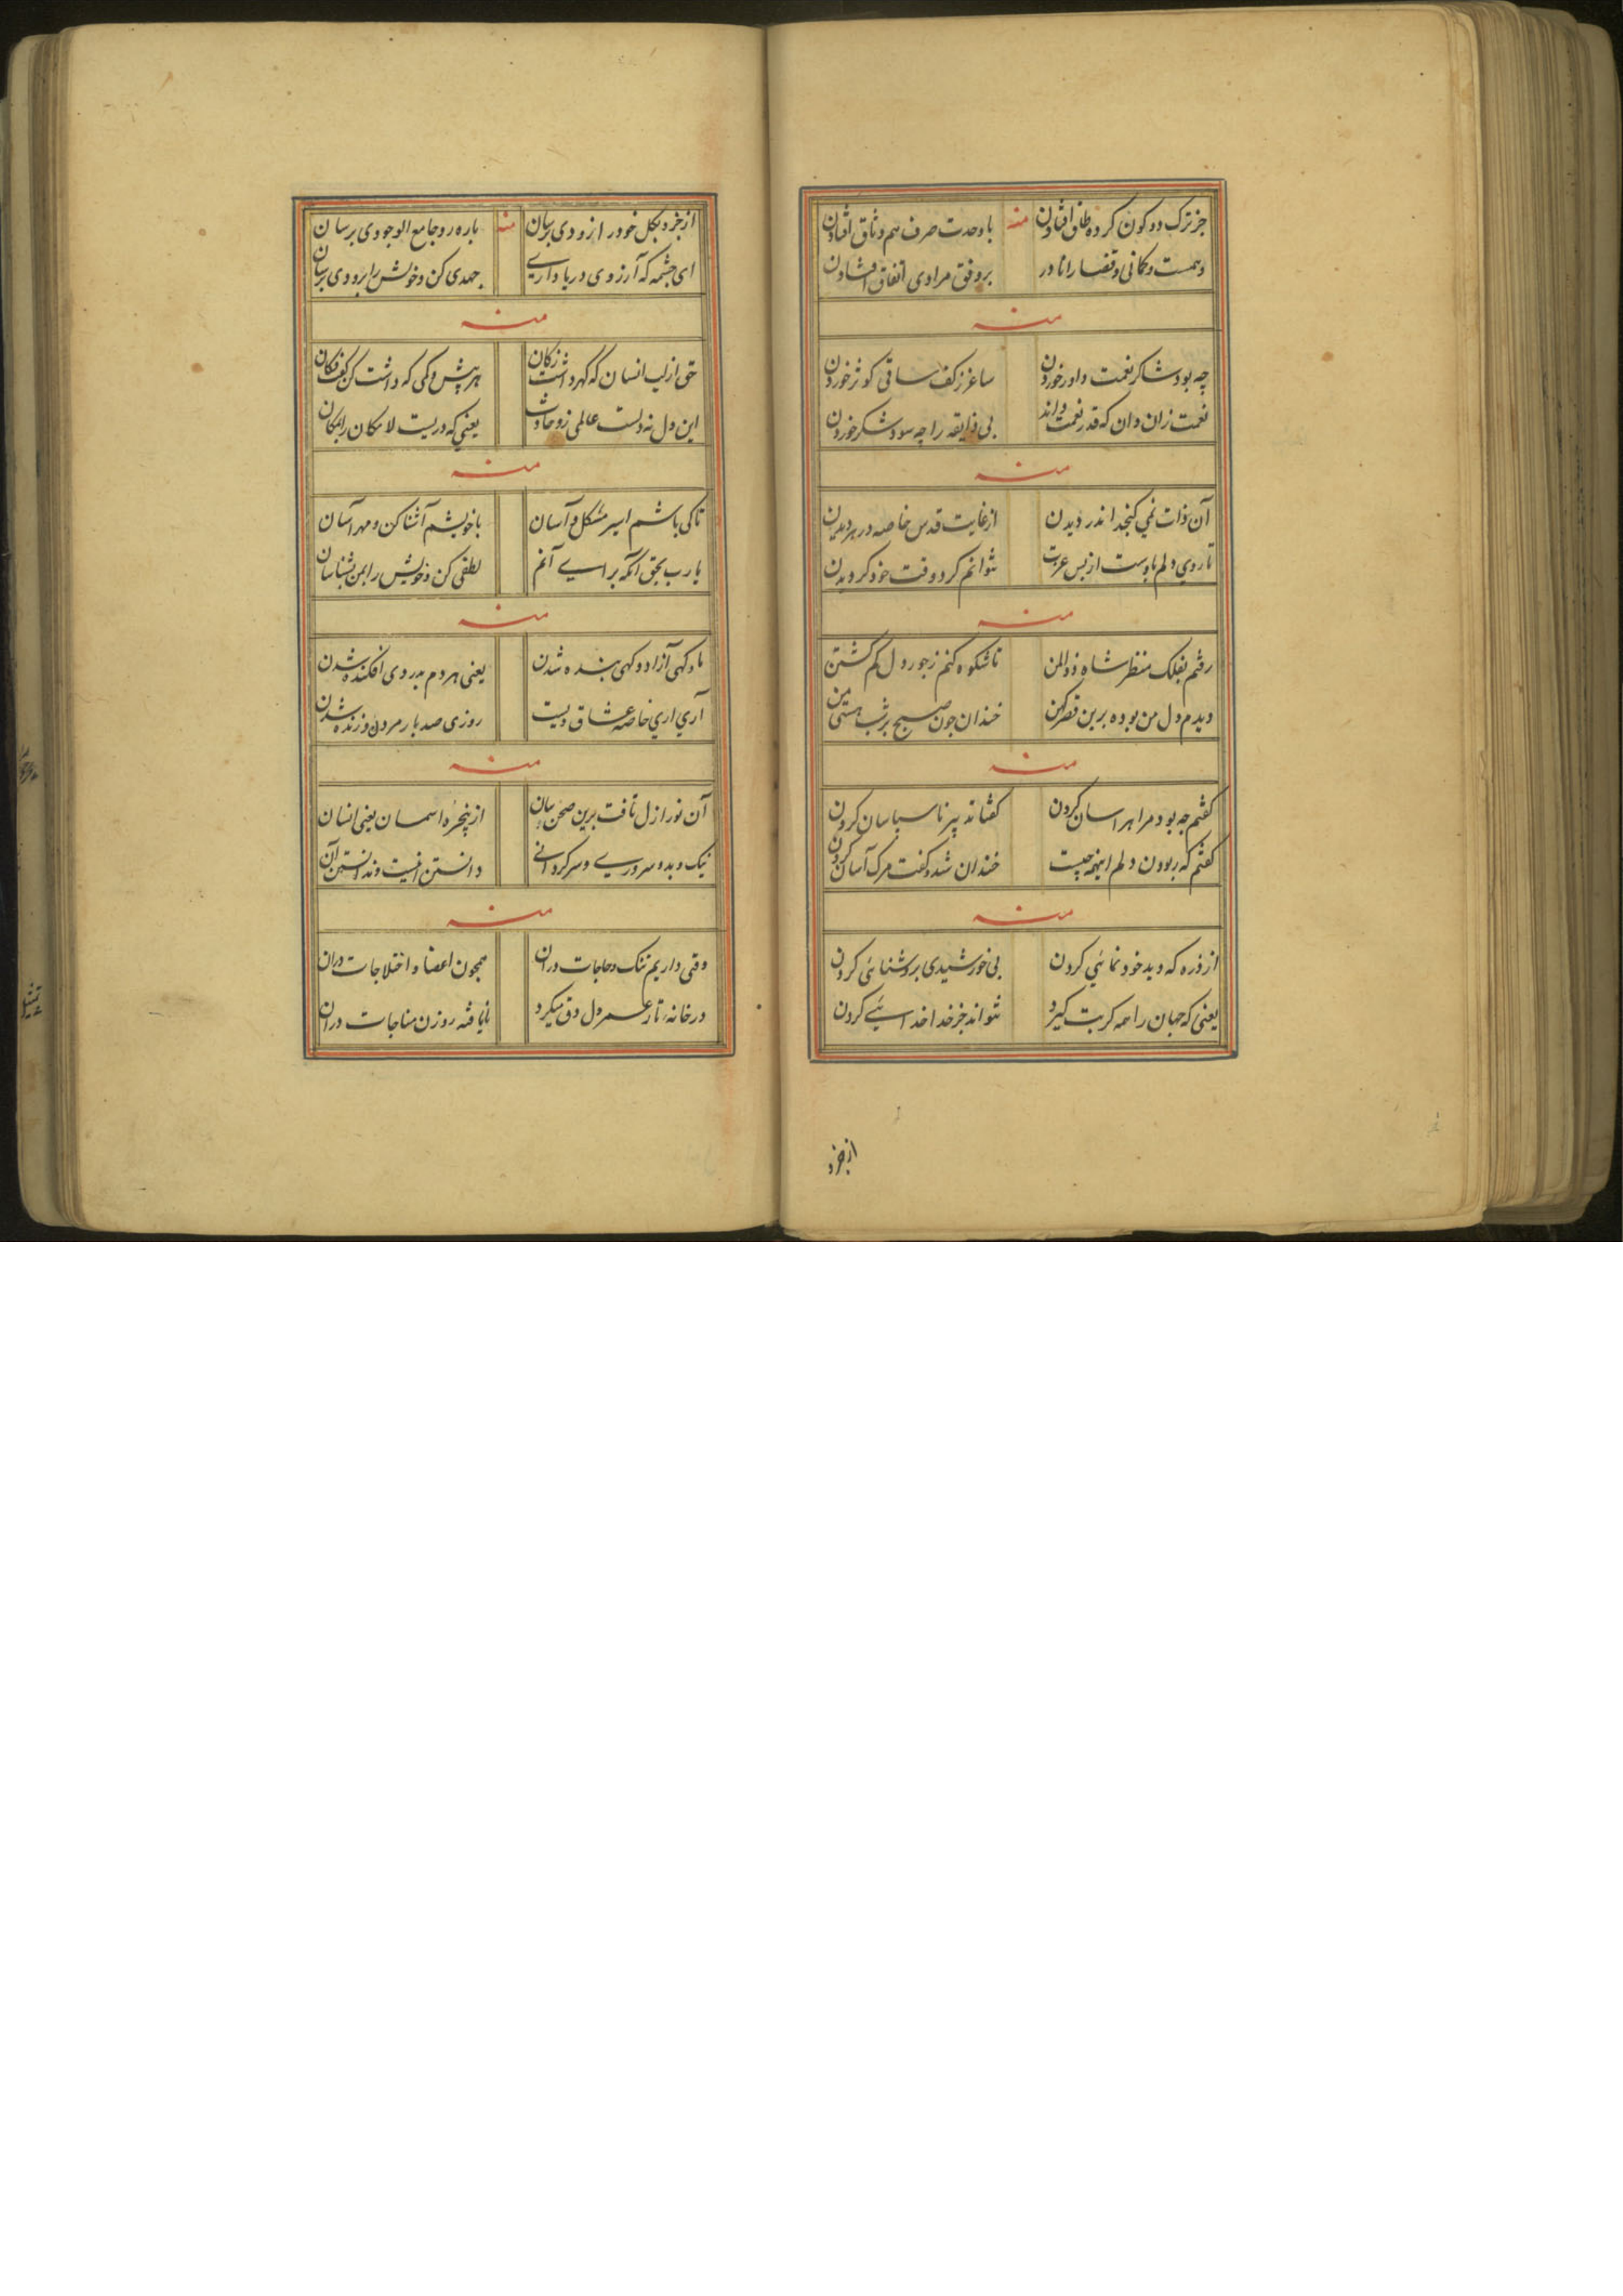 جز ترک دو کون کرده طاق افتادن منه با وحدت صرف هم وثاق افتادن
وهمست و کمانی و قضا را نادر بر وفق مرادی اتفاق افتادن
منه
چه بود شاکر نعمت داور خوردن ساغر ز کف ساقی کوثر خوردن
نعمت زان دان که قدر نعمت داند بی ذایقه را چه سود شکر خوردن
منه
آن ذات نمی کنجد اندر دیدن از غایت قدس خاصه در هر دیدن
تا روی دلم باوست از بس عزت نتوانم کرد وقت خود کردیدن
منه
رفتم بفلک منظر شاه ذوالمن تا شکوه کنم ز جور دل کم کشتن
دیدم دل من بوده برین قصر کهن خندان چون صبح بر شب هستی من
منه
کفتم چه بود مرا هراسان کردن کفتا نه پیر ناسپاسان کردن
کفتم که ربودن دلم اینهمه چیست خندان شد و کفت مرک آسان کردن
منه
از ذره که دید خود نمائی کردن بی خورشیدی بروشنائی کردن
یعنی که جهان را همه کربت کیرد نتواند جز خدا خدائی کردن
از جزو
از جزو بکل خود را زودی برسان منه باره رو جامع الوجودی برسان
ای چشمه که آرزوی دریا داری جهدی کن و خویش را برودی برسان
منه
حق از لب انسان که کهر داشت زکان هر بیش و کمی که داشت کن کفت فکان
این دل نه دلست عالمی زو حادث یعنی که دریست لامکان را بمکان
منه
تا کی باشم اسیر مشکل و آسان با خویشم آشنا کن و مهراسان
یا رب بحق آنکه برای آنم لطفی کن و خویش را بمن بشناسان
منه
ماو کهی آزاد و کهی بنده شدن یعنی هر دم بدردی افکنده شدن
آری آری خاصه عشاق ویست روزی صد بار مردن و زنده شدن
منه
آن نور ازل تافت برین صحن بیان از پنجره اسمان یعنی انسان
نیک و بد و سروری و سرکردانی دانستن انیست و ندانستن آن
منه
وقتی داریم تنک و حاجات در آن همچون اعضا و اختلاجات در آن
در خانه تار عمر دل دق میکرد نایافته روزن مناجات در آن